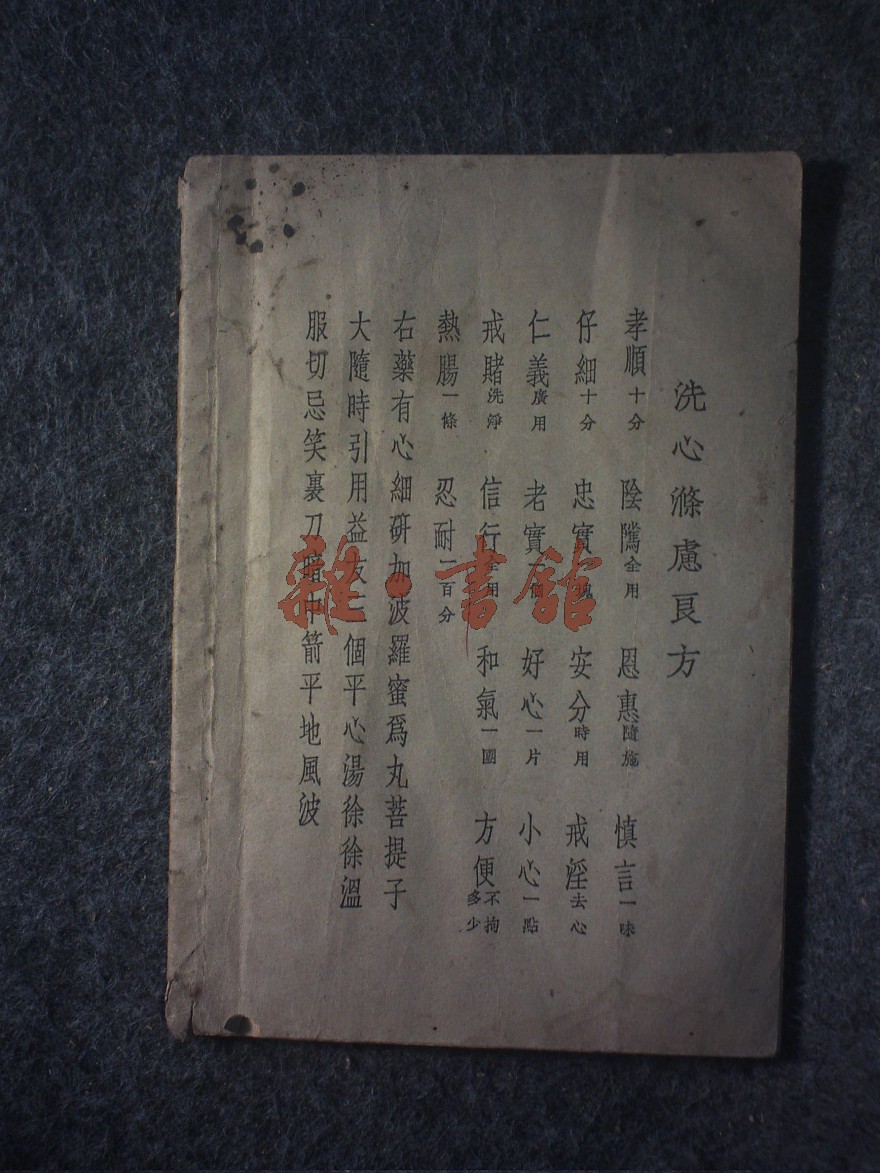 洗心滌慮良方
孝順十分 陰隲全用 恩惠隨施 慎言一味
仔細十分 忠實一塊 安分時用 戒淫去心
仁義廣用 老實一個 好心一片 小心一點
戒賭洗淨 信行全用 和氣一團 方便不拘多少
熱腸一條 忍耐一百分
右藥有心細研加波羅蜜爲丸菩提子
大隨時引用益友三個平心湯徐徐溫
服切忌笑裏刀暗中箭平地風波
雜·書館